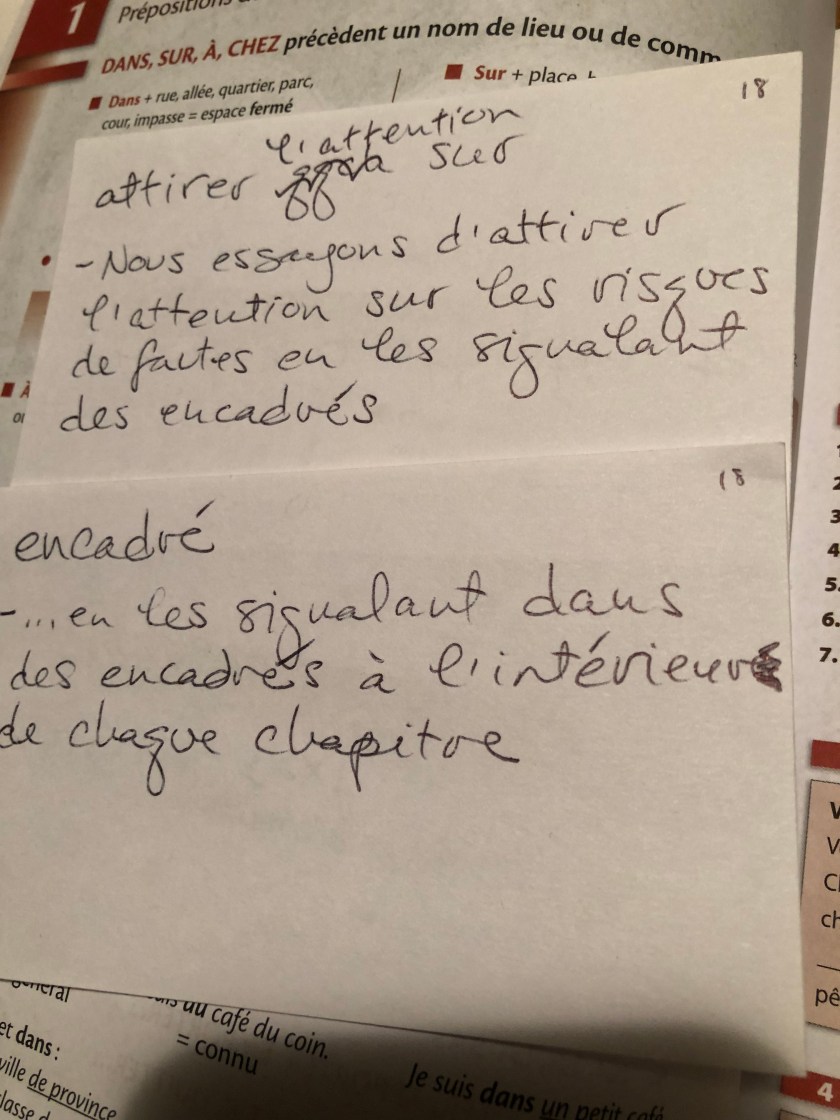 1 Prépositions
DANS, SUR, À, CHEZ précèdent un nom de lieu ou de comm
■ Dans + rue, allée, quartier, parc,
cour, impasse = espace fermé
■ Sur + place
18
l'attention
attirer sur
- Nous essayons d'attirer
l'attention sur les risques
de fautes en les signalant
des encadrés
■ À
18
encadré
- ... en les signalant dans
des encadrés à l'intérieur
de chaque chapitre
1
2
3
4
5.
6.
7.
V
V
ch
pê
4
général
au café du coin.
= connu
et dans :
ville de province
Je suis dans un petit café